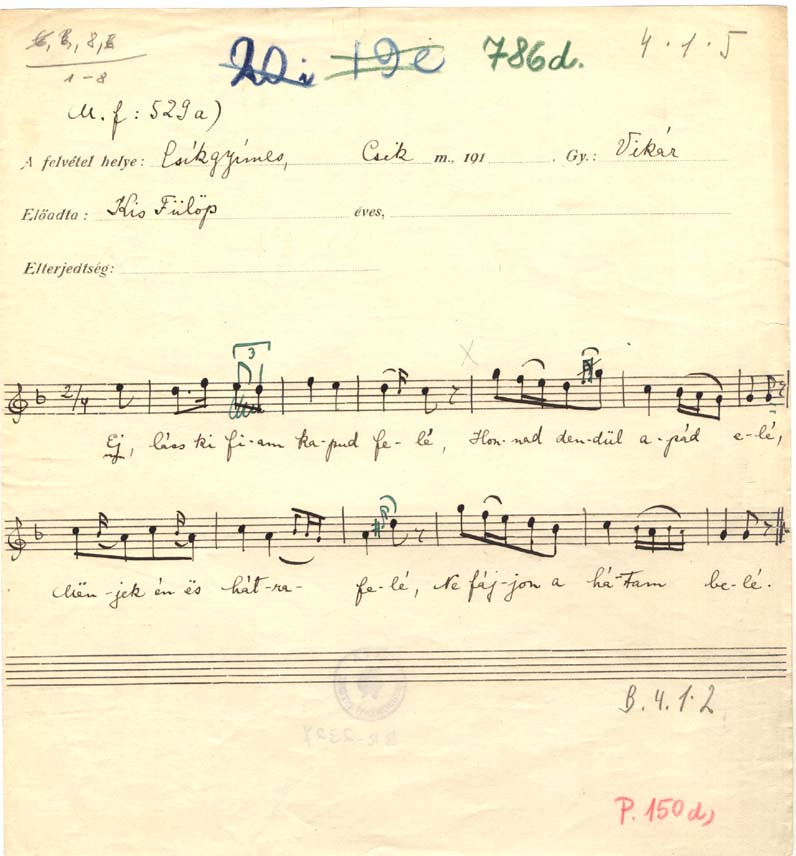 6, B, 8, B
1-8
20i 19e 786d. 4.1.5
M. f: 529a)
A felvétel helye: Csíkgyímes, Csik m., 191 . Gy.: Vikár
Előadta: Kis Fülöp éves,
Elterjedtség:
3
2/4
Ej, láss ki fi-am ka-pud fe-lé, Hon-nad den-dül a-pád e-lé,
Mën-jek én ës hát-ra- fe-lé, Ne fáj-jon a há-tam be-lé.
B.4.1.2
P. 150d,